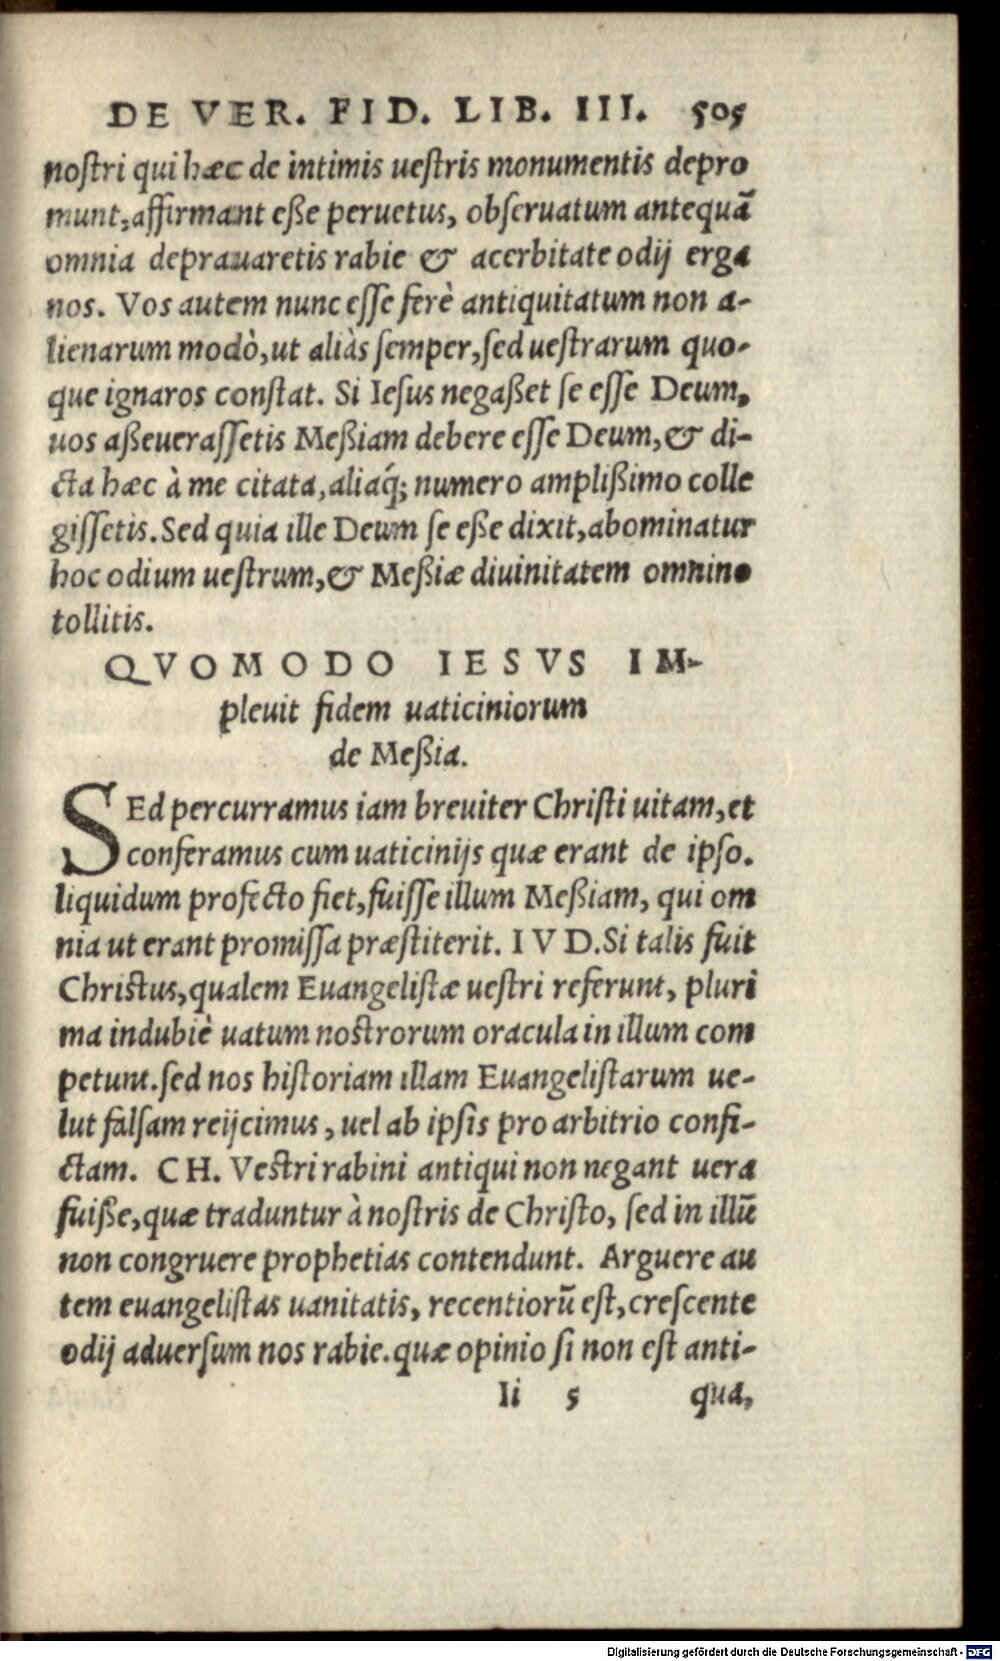 DE VER. FID. LIB. III. 505
nostri qui hæc de intimis uestris monumentis depro
munt, affirmant eße peruetus, obseruatum antequā
omnia deprauaretis rabie & acerbitate odij erga
nos. Vos autem nunc esse ferè antiquitatum non a-
lienarum modò, ut aliàs semper, sed uestrarum quo-
que ignaros constat. Si Iesus negaßet se esse Deum,
uos aßeuerassetis Meßiam debere esse Deum, & di-
cta hæc à me citata, aliaq́; numero amplißimo colle
gissetis. Sed quia ille Deum se eße dixit, abominatur
hoc odium uestrum, & Meßiæ diuinitatem omnino
tollitis.
QVOMODO IESVS IM-
pleuit fidem uaticiniorum
de Meßia.
SEd percurramus iam breuiter Christi uitam, et
conferamus cum uaticinijs quæ erant de ipso.
liquidum profecto fiet, fuisse illum Meßiam, qui om
nia ut erant promissa præstiterit. IVD. Si talis fuit
Christus, qualem Euangelistæ uestri referunt, pluri
ma indubiè uatum nostrorum oracula in illum com
petunt. sed nos historiam illam Euangelistarum ue-
lut falsam reijcimus, uel ab ipsis pro arbitrio confi-
ctam. CH. Vestri rabini antiqui non negant uera
fuiße, quæ traduntur à nostris de Christo, sed in illū
non congruere prophetias contendunt. Arguere au
tem euangelistas uanitatis, recentiorū est, crescente
odij aduersum nos rabie. quæ opinio si non est anti-
Ii 5 qua,
Digitalisierung gefördert durch die Deutsche Forschungsgemeinschaft - DFG